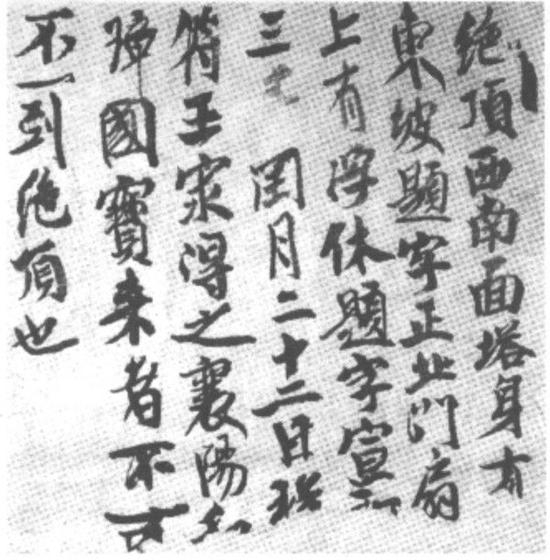 絶頂西南面塔身有
東坡題字正北門扇
上有浮休題字宣和
三 閏月二十二日
符王得之襄陽
璋國寶来者不可
不一到絶頂也